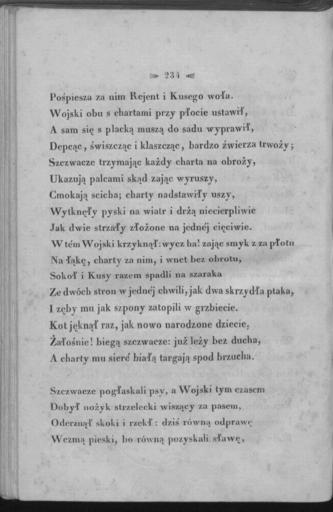 234
Pośpiesza za nim Rejent i Kusego woła.
Wojski obu s chartami przy płocie ustawił,
A sam się s placką muszą do sadu wyprawił,
Depcąc, świszcząc i klaszcząc, bardzo źwierza trwoży;
Szczwacze trzymając każdy charta na obroży,
Ukazują palcami skąd zając wyruszy,
Cmokają scicha; charty nadstawiły uszy,
Wytknęły pyski na wiatr i drżą niecierpliwie
Jak dwie strzały złożone na jednéj cięciwie.
Wtém Wojski krzyknął: wycz ha! zając smyk z za płotu
Na łąkę, charty za nim, i wnet bez obrotu,
Sokoł i Kusy razem spadli na szaraka
Ze dwóch stron w jednéj chwili, jak dwa skrzydła ptaka,
I zęby mu jak szpony zatopili w grzbiecie.
Kot jęknął raz, jak nowo narodzone dziecię,
Żałośnie! biegą szczwacze: już leży bez ducha,
A charty mu sierć białą targają spod brzucha.
Szczwacze pogłaskali psy, a Wojski tym czasem
Dobył nożyk strzelecki wiszący za pasem,
Oderznął skoki i rzekł: dziś równą odprawę
Wezmą pieski, bo równą pozyskali sławę,